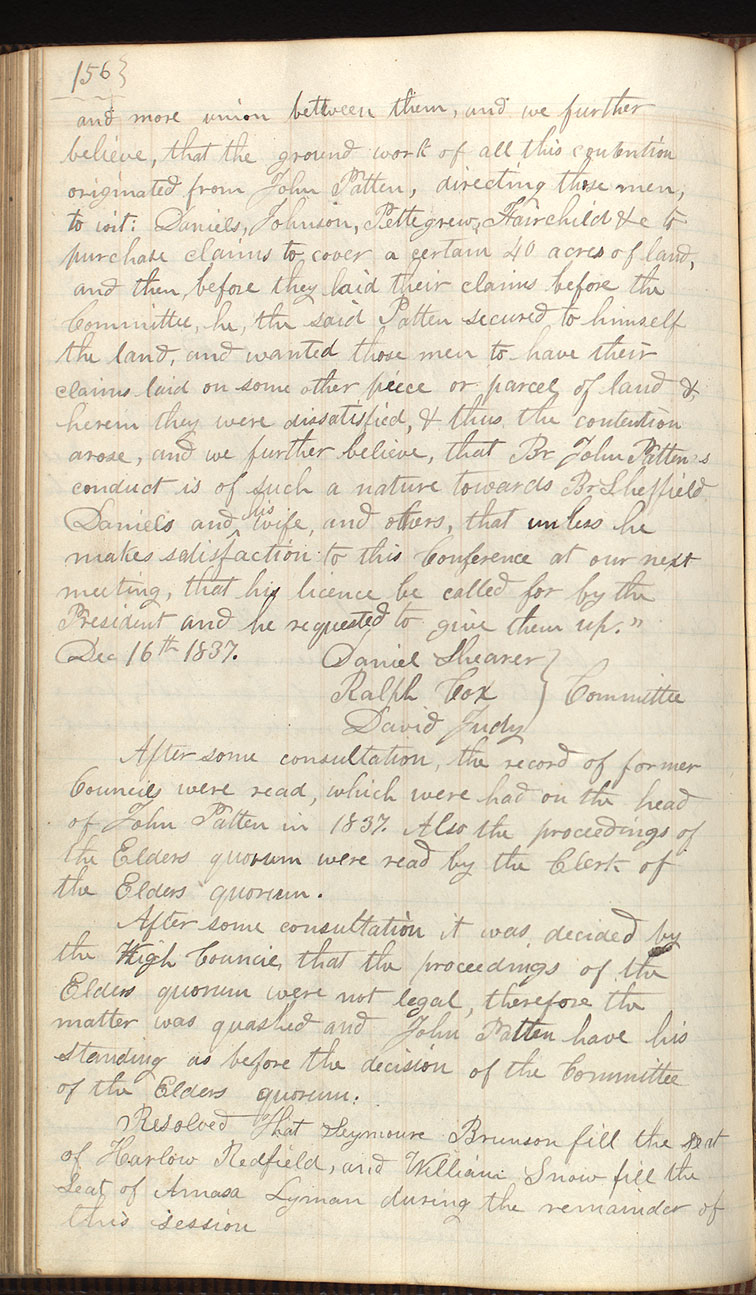 156}
and more union between them, and we further
believe, that the ground work of all this contention
originated from John Patten, directing those men,
to wit: Daniels, Johnson, Pettegrew, Fairchild &c to
purchase claims to cover a certain 40 acres of land,
and then, before they laid their claims before the
Committee, he, the said Patten secured to himself
the land, and wanted those men to have their
claims laid on some other piece or parcel of land &
herein they were dissatisfied, & thus the contention
arose, and we further believe, that Br. John Patten's
conduct is of such a nature towards Br. Sheffield
Daniels and his wife, and others, that unless he
makes satisfaction to this Conference at our next
meeting, that his licence be called for by the
President and he requested to give them up."
Dec 16th 1837. Daniel Shearer
Ralph Cox } Committee
David Judy
After some consultation, the record of former
Councils were read, which were had on the head
of John Patten in 1837. Also the proceedings of
the Elders quorum were read by the Clerk of
the Elders quorum.
After some consultation it was decided by
the High Council, that the proceedings of the
Elders quorum were not legal, therefore the
matter was quashed and John Patten have his
standing as before the decision of the Committee
of the Elders quorum.
Resolved That Seymoure Brunson fill the seat
of Harlow Redfield, and William Snow fill the
Seat of Amasa Lyman during the remainder of
this session